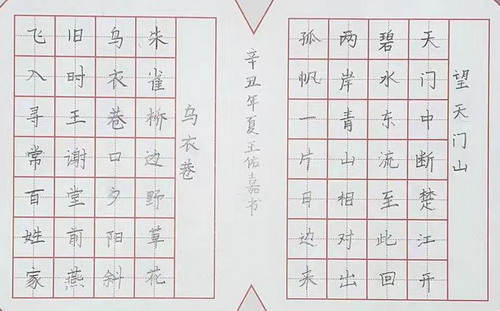 望天门山
天门中断楚江开
碧水东流至此回
两岸青山相对出
孤帆一片日边来
辛丑年夏王佑嘉书
乌衣巷
朱雀桥边野草花
乌衣巷口夕阳斜
旧时王谢堂前燕
飞入寻常百姓家